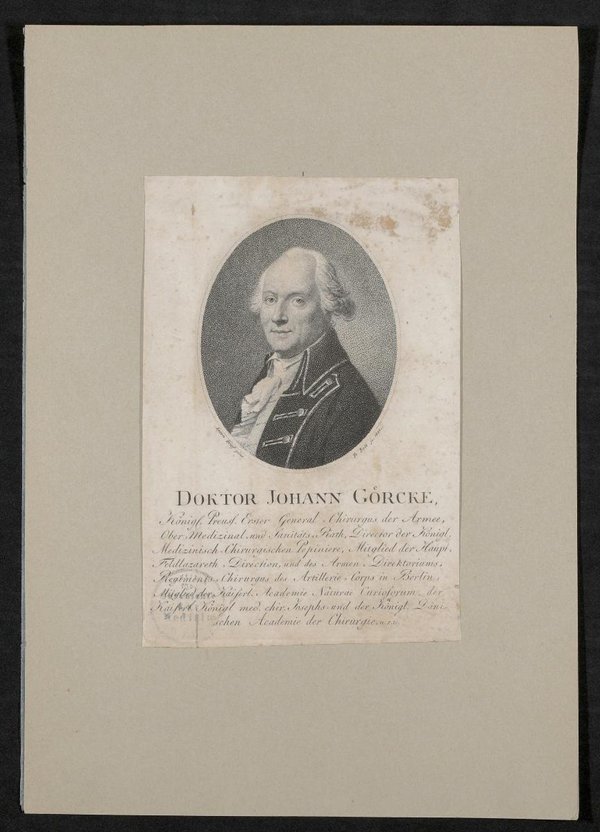 DOKTOR JOHANN GÖRCKE,
Königl. Preuss. Erster General-Chirurgus der Armee,
Ober-Medizinal und Sanitäts-Rath, Director der Königl.
Medizinisch-Chirurgischen Pepiniere, Mitglied der Haupt
Feldlazareth-Direction, und des Armen-Direktoriums,
Regiments-Chirurgus des Artillerie-Corps in Berlin,
Mitglied der Kaiserl. Academie Naturae Curiosorum, der
Kaiserl. Königl. med. chir. Josephs und der Königl. Däni-
schen Academie der Chirurgie